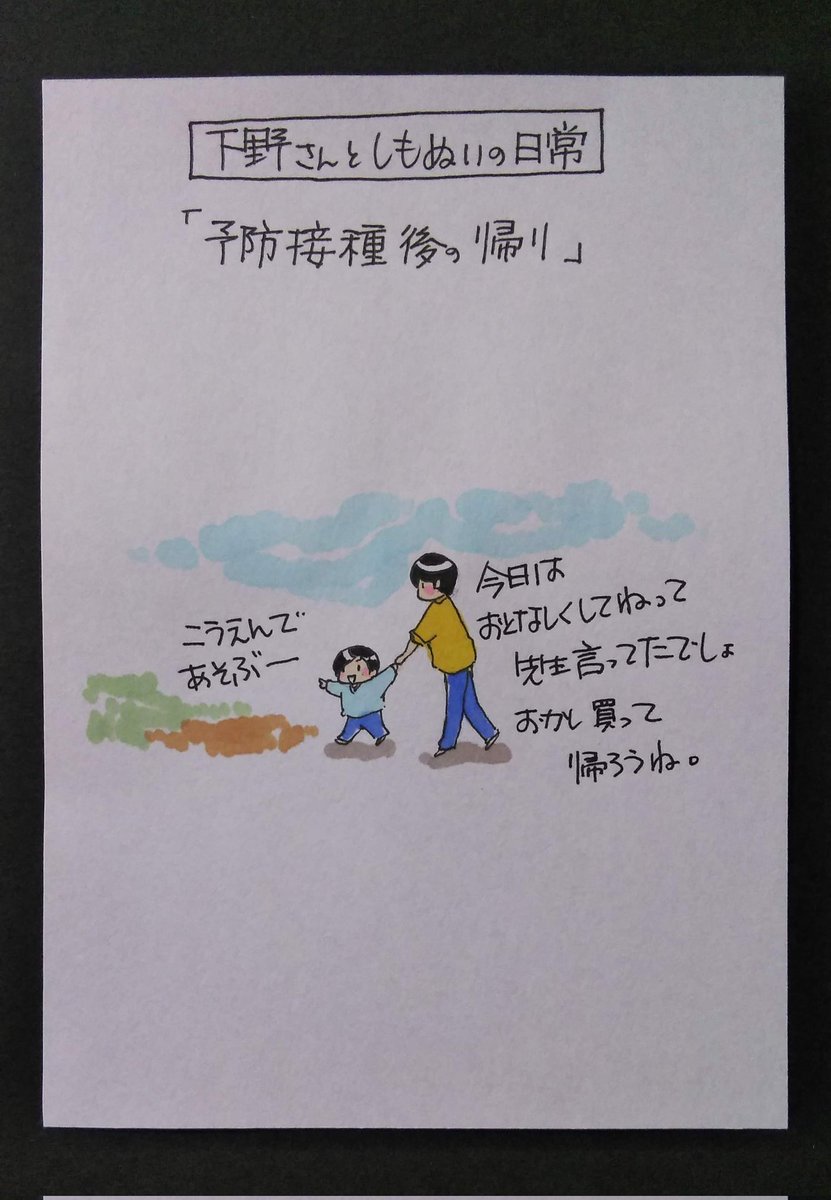 下野さんとしもぬいの日常
「予防接種後の帰り」
こうえんで
あそぶー
今日は
おとなしくしてねって
先生言ってたでしょ
おかし買って
帰ろうね。